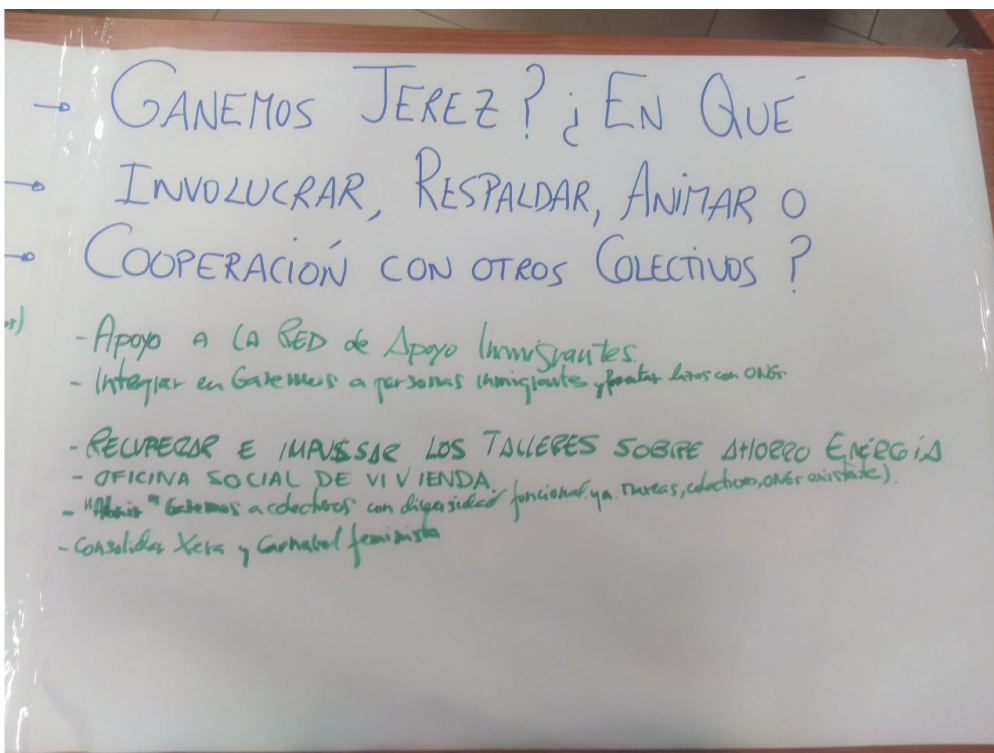 → GANEMOS JEREZ? ¿EN QUÉ
→ INVOLUCRAR, RESPALDAR, ANIMAR O
→ COOPERACIÓN CON OTROS COLECTIVOS?
- Apoyo A LA RED de Apoyo Inmigrantes.
- Integrar en Ganemos a personas inmigrante y lazos con ONGs.
- RECUPERAR E IMPULSAR LOS TALLERES SOBRE AHORRO ENERGÍA
- OFICINA SOCIAL DE VIVIENDA.
- "Abrir" Ganemos a colectivos con diversidad funcional ya. Mareas, colectivos, ONGs existente)
- Consolidar Xera y Carnabal feminista